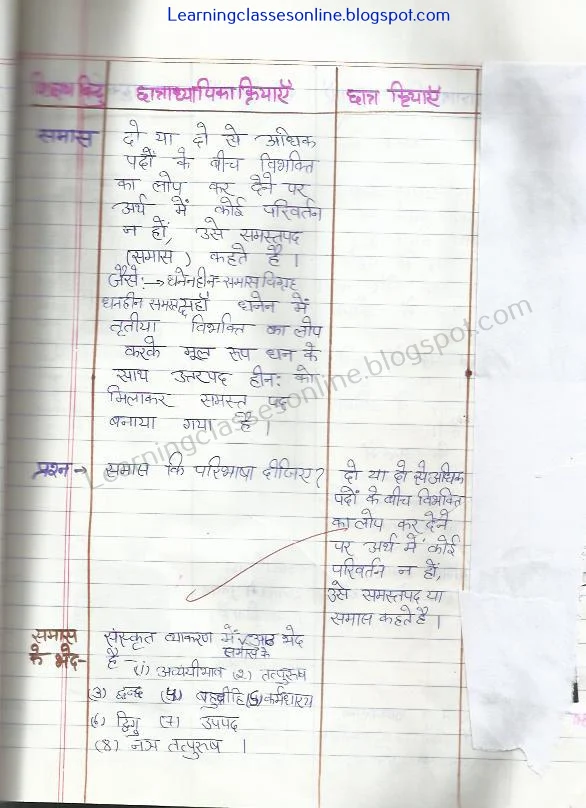 Learningclassesonline.blogspot.com
शिक्षण बिन्दु छात्राध्यापिका क्रियाएँ छात्र क्रियाएँ
समास दो या दो से अधिक
पदों के बीच विभक्ति
का लोप कर देने पर
अर्थ में कोई परिवर्तन
न हों, उसे समस्तपद
(समास) कहते है।
जैसे:→ धनेनहीन-समास विग्रह
धनहीन समस्त यहाँ धनेन में
तृतीया विभक्ति का लोप
करके मूल रूप धन के
साथ उत्तरपद हीन: को
मिलाकर समस्त पद
बनाया गया है।
Learningclassesonline.blogspot.com
प्रश्न→ समास कि परिभाषा दीजिए?
दो या दो से अधिक
पदों के बीच विभक्ति
का लोप कर देने
पर अर्थ में कोई
परिवर्तन न हों,
उसे समस्तपद या
समास कहते है।
समास के भेद- संस्कृत व्याकरण में समास के आठ भेद
है- (1) अव्ययीभाव (2) तत्पुरूष
(3) द्वन्द्व (4) बहुव्रीहि (5) कर्मधारय
(6) द्विगु (7) उपपद
(8) नञ तत्पुरूष ।